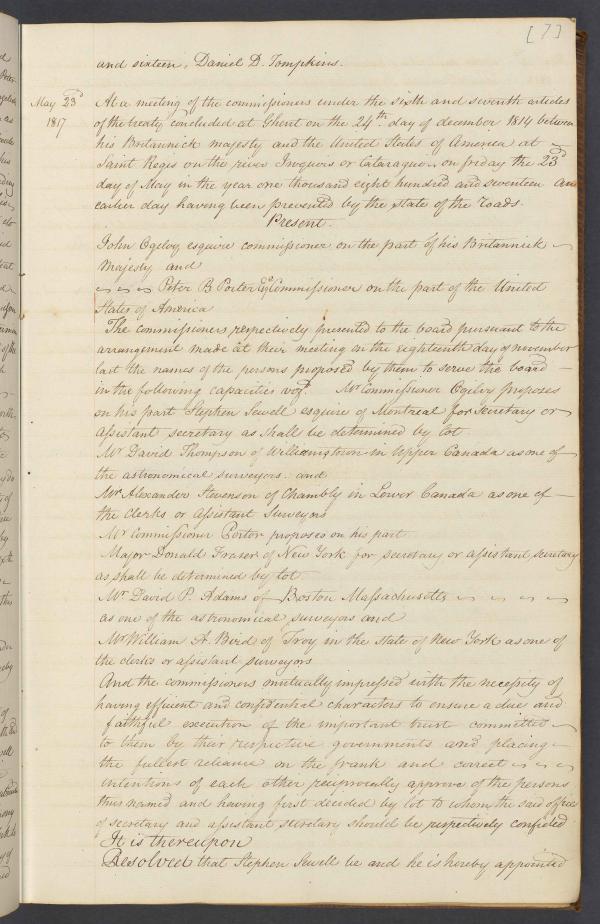 [7]
and sixteen, Daniel D. Tompkins.
May 23d At a meeting of the commissioners under the sixth and seventh articles
1817 of the treaty concluded at Ghent on the 24th day of december 1814 between
his Britannick majesty and the United States of America at
Saint Regis on the river Iroquois or Cataraquo, on friday the 23d
day of May in the year one thousand eight hundred and seventeen an
earlier day having been prevented by the state of the roads.
Present.
John Ogilvy esquire commissioner on the part of his Britannick
Majesty and
Peter B Porter Esqe Commissioner on the part of the United
States of America
The commissioners respectively presented to the board pursuant to the
arrangement made at their meeting on the eighteenth day of november
last the names of the persons proposed by them to serve the board
in the following capacities vizt. Mr Commissioner Ogilvy proposes
on his part Stephen Sewell esquire of Montreal for Secretary or
assistant secretary as shall be determined by lot
Mr David Thompson of Williamstown in Upper Canada as one of
the astronomical surveyors and
Mr Alexander Stevenson of Chambly in Lower Canada as one of
the clerks or assistant Surveyors
Mr Commissioner Porter proposes on his part
Major Donald Fraser of New York for secretary or assistant secretary
as shall be determined by lot
Mr David P. Adams of Boston Massachusetts
as one of the astronomical surveyors and
Mr William A. Bird of Troy in the State of New York as one of
the clerks or assistant surveyors
And the commissioners mutually impressed with the necessity of
having efficient and confidential characters to ensure a due and
faithful execution of the important trust committed
to them by their respective governments and placing
the fullest reliance on the frank and correct
intentions of each other reciprocally approve of the persons
thus named and having first decided by lot to whom the said offices
of secretary and assistant secretary should be respectively confided
It is thereupon
Resolved that Stephen Sewell be and he is hereby appointed